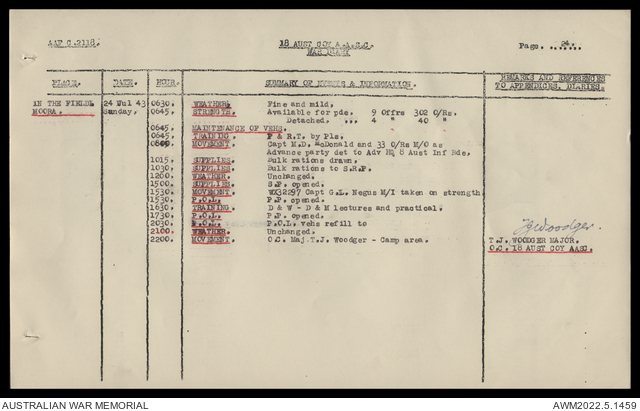 AAF C.2118.
18 AUST COY A.A.S.C.
WAR DIARY
Page. 24.
PLACE. DATE. HOUR. SUMMARY OF EVENTS & INFORMATION. REMARKS AND REFERENCES
TO APPENDICES, DIARIES.
IN THE FIELD. 24 Jul 43 0630. WEATHER. Fine and mild.
MOORA. Sunday. 0645. STRENGTH. Available for pde. 9 Offrs 302 O/Rs.
Detached. " 4 " 40 "
0645 MAINTENANCE OF VEHS.
0645. TRAINING. P & R.T. by Pls.
MOVEMENT. Capt M.D. McDonald and 33 O/Rs M/O as
Advance party det to Adv HQ 8 Aust Inf Bde.
1015. SUPPLIES. Bulk rations drawn.
1030. SUPPLIES. Bulk rations to S.R.P.
1200. WEATHER. Unchanged.
1500. SUPPLIES. S.P. opened.
1530. MOVEMENT. WX32297 Capt G.L. Negus M/I taken on strength.
1530. P.O.L. P.P. opened.
1630. TRAINING. D & W - D & M lectures and practical.
1730. P.O.L. P.P. opened.
2030. P.O.L. P.O.L. vehs refill to
2100. WEATHER. Unchanged.
2200. MOVEMENT. O.C. Maj. T.J. Woodger - Camp area.
TJWoodger.
T.J. WOODGER MAJOR.
O.C. 18 AUST COY AASC.
AUSTRALIAN WAR MEMORIAL
AWM2022.5.1459